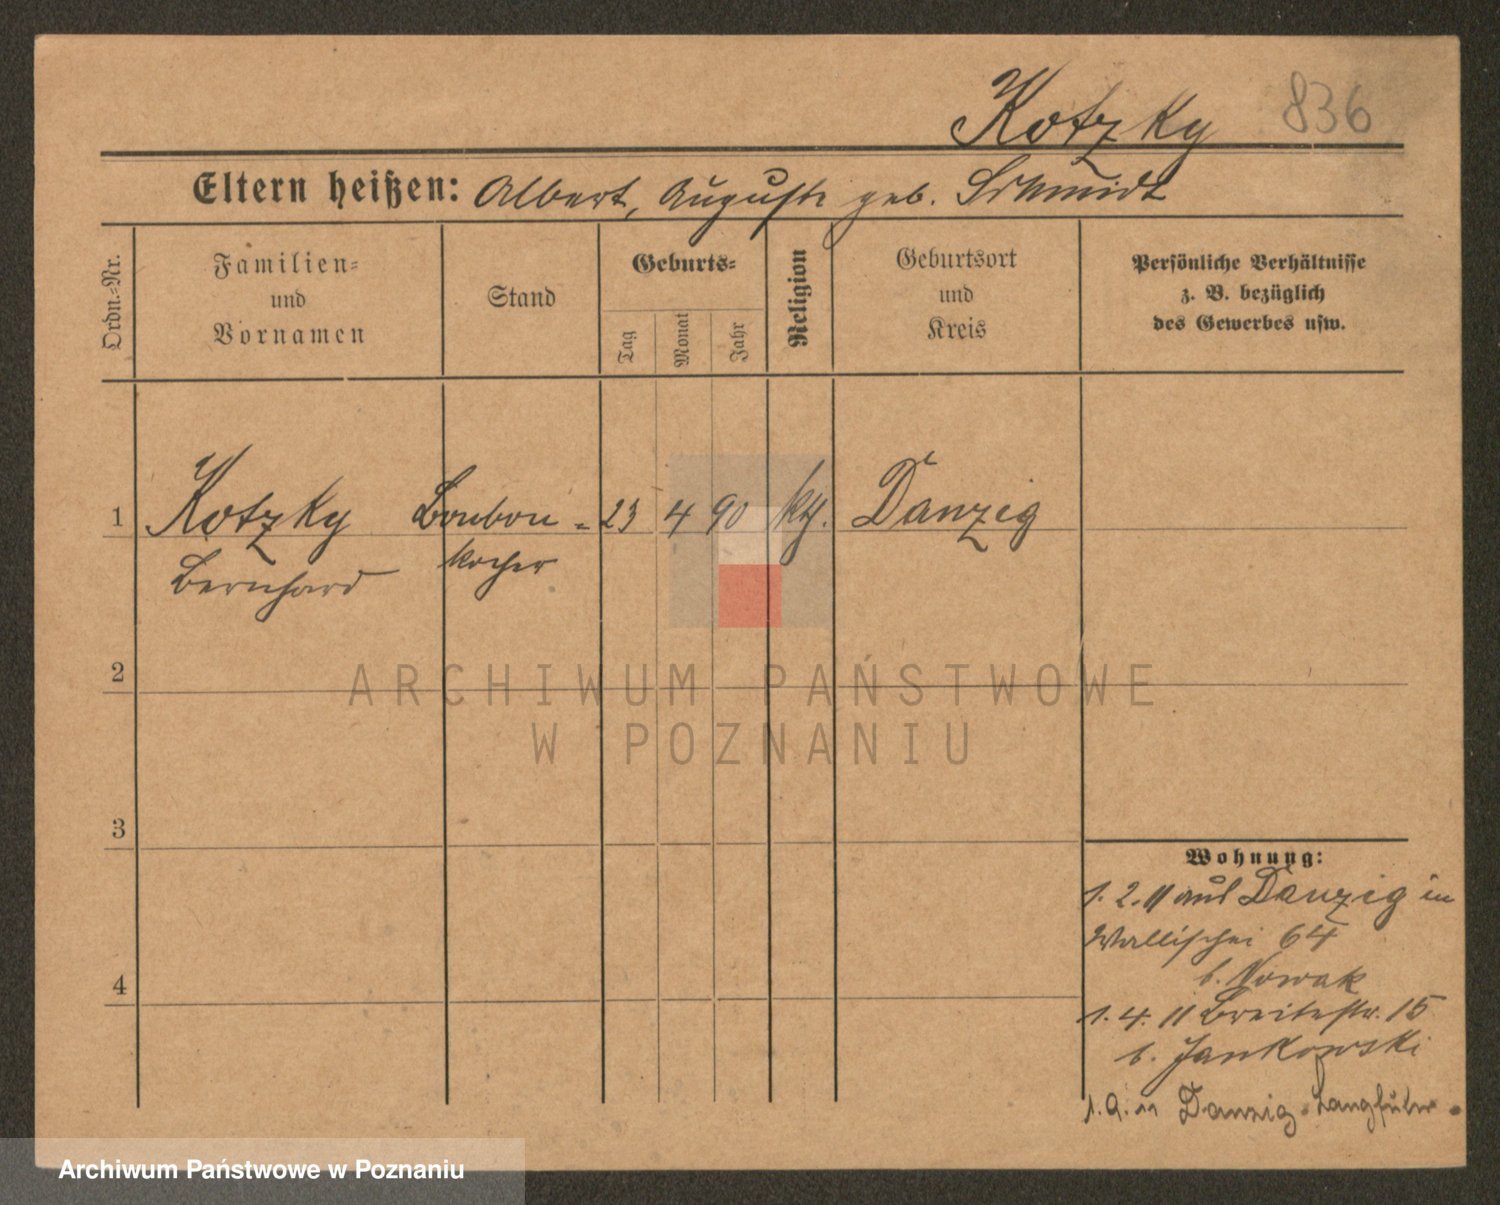 Kotzky 836
Eltern heißen: Albert, Auguste geb. Schmidt
Ordn.-Nr.
Familien-
und
Vornamen
Stand
Geburts-
Tag
Monat
Jahr
Religion
Geburtsort
und
Kreis
Persönliche Verhältnisse
z. B. bezüglich
des Gewerbes usw.
1 Kotzky Bonbon- 23 4 90 kth. Danzig
Bernhard kocher
2
3
4
Wohnung:
1. 2. 11 aus Danzig in
Wallischei 64
b. Nowak
1. 4. 11 Breitestr. 15
b. Jankowski
1. 9. 11 Danzig-Langfuhr.
ARCHIWUM PAŃSTWOWE
W POZNANIU
Archiwum Państwowe w Poznaniu